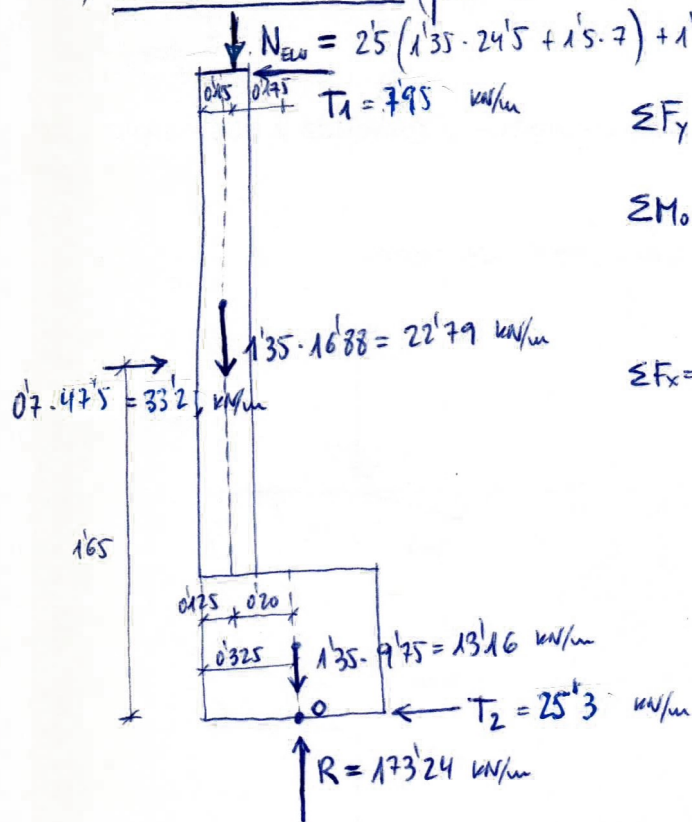 N_ELU = 2'5 (1'35 · 24'5 + 1'5 · 7) + 1'
0'15 0'175
T1 = 7'95 kN/m
ΣFy
ΣMo
1'35 · 16'88 = 22'79 kN/m
ΣFx=
0'7 · 47'5 = 33'2 kN/m
1'65
0'125 0'20
0'325
1'35 · 9'75 = 13'16 kN/m
O
T2 = 25'3 kN/m
R = 173'24 kN/m